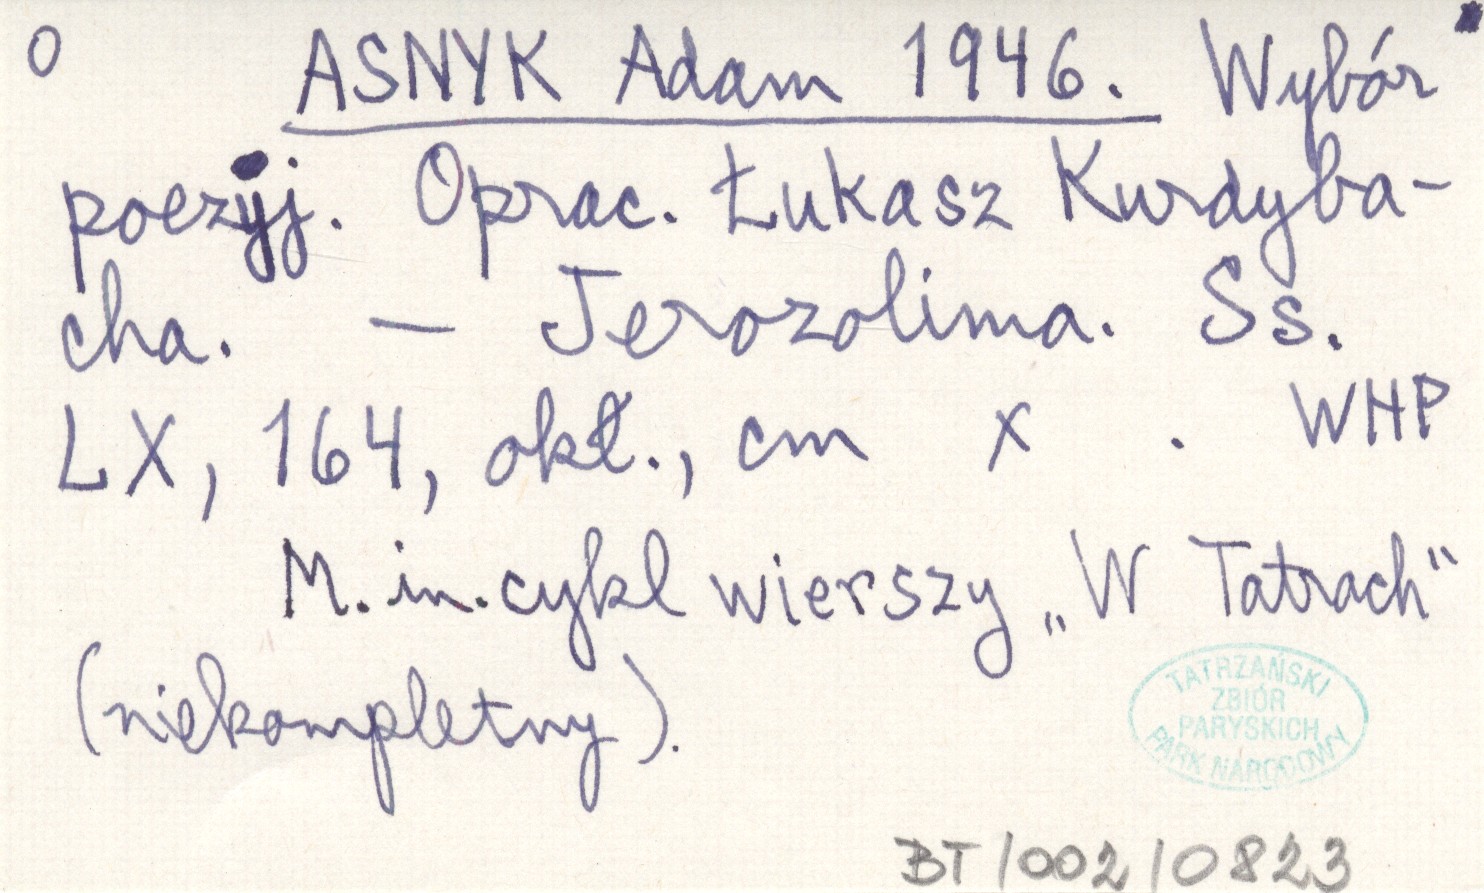 O ASNYK Adam 1946. Wybór
poezyj. Oprac. Łukasz Kurdyba-
cha. — Jerozolima. Ss.
LX, 164, okł., cm x . WHP
M. in. cykl wierszy „W Tatrach“
(niekompletny).
TATRZAŃSKI
ZBIÓR
PARYSKICH
PARK NARODOWY
BT/002/0823